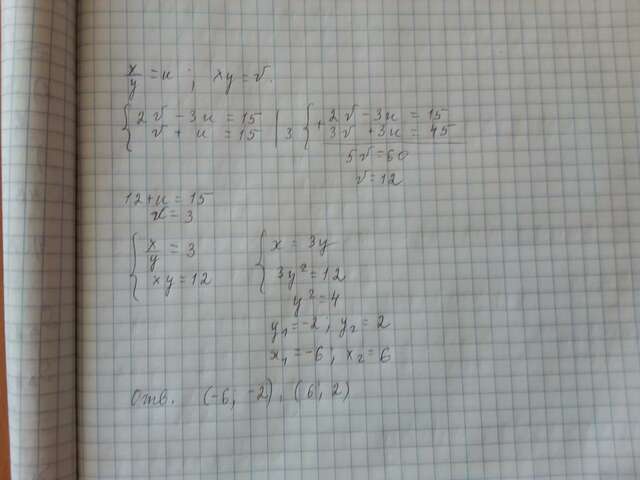 x/y = u ; xy = v.
{ 2v - 3u = 15 | { + 2v - 3u = 15
v + u = 15 | 3 3v + 3u = 45
5v = 60
v = 12
12 + u = 15
u = 3
{ x/y = 3 { x = 3y
xy = 12 3y² = 12
y² = 4
y₁ = -2 ; y₂ = 2
x₁ = -6 ; x₂ = 6
Отв. (-6; -2), (6; 2)